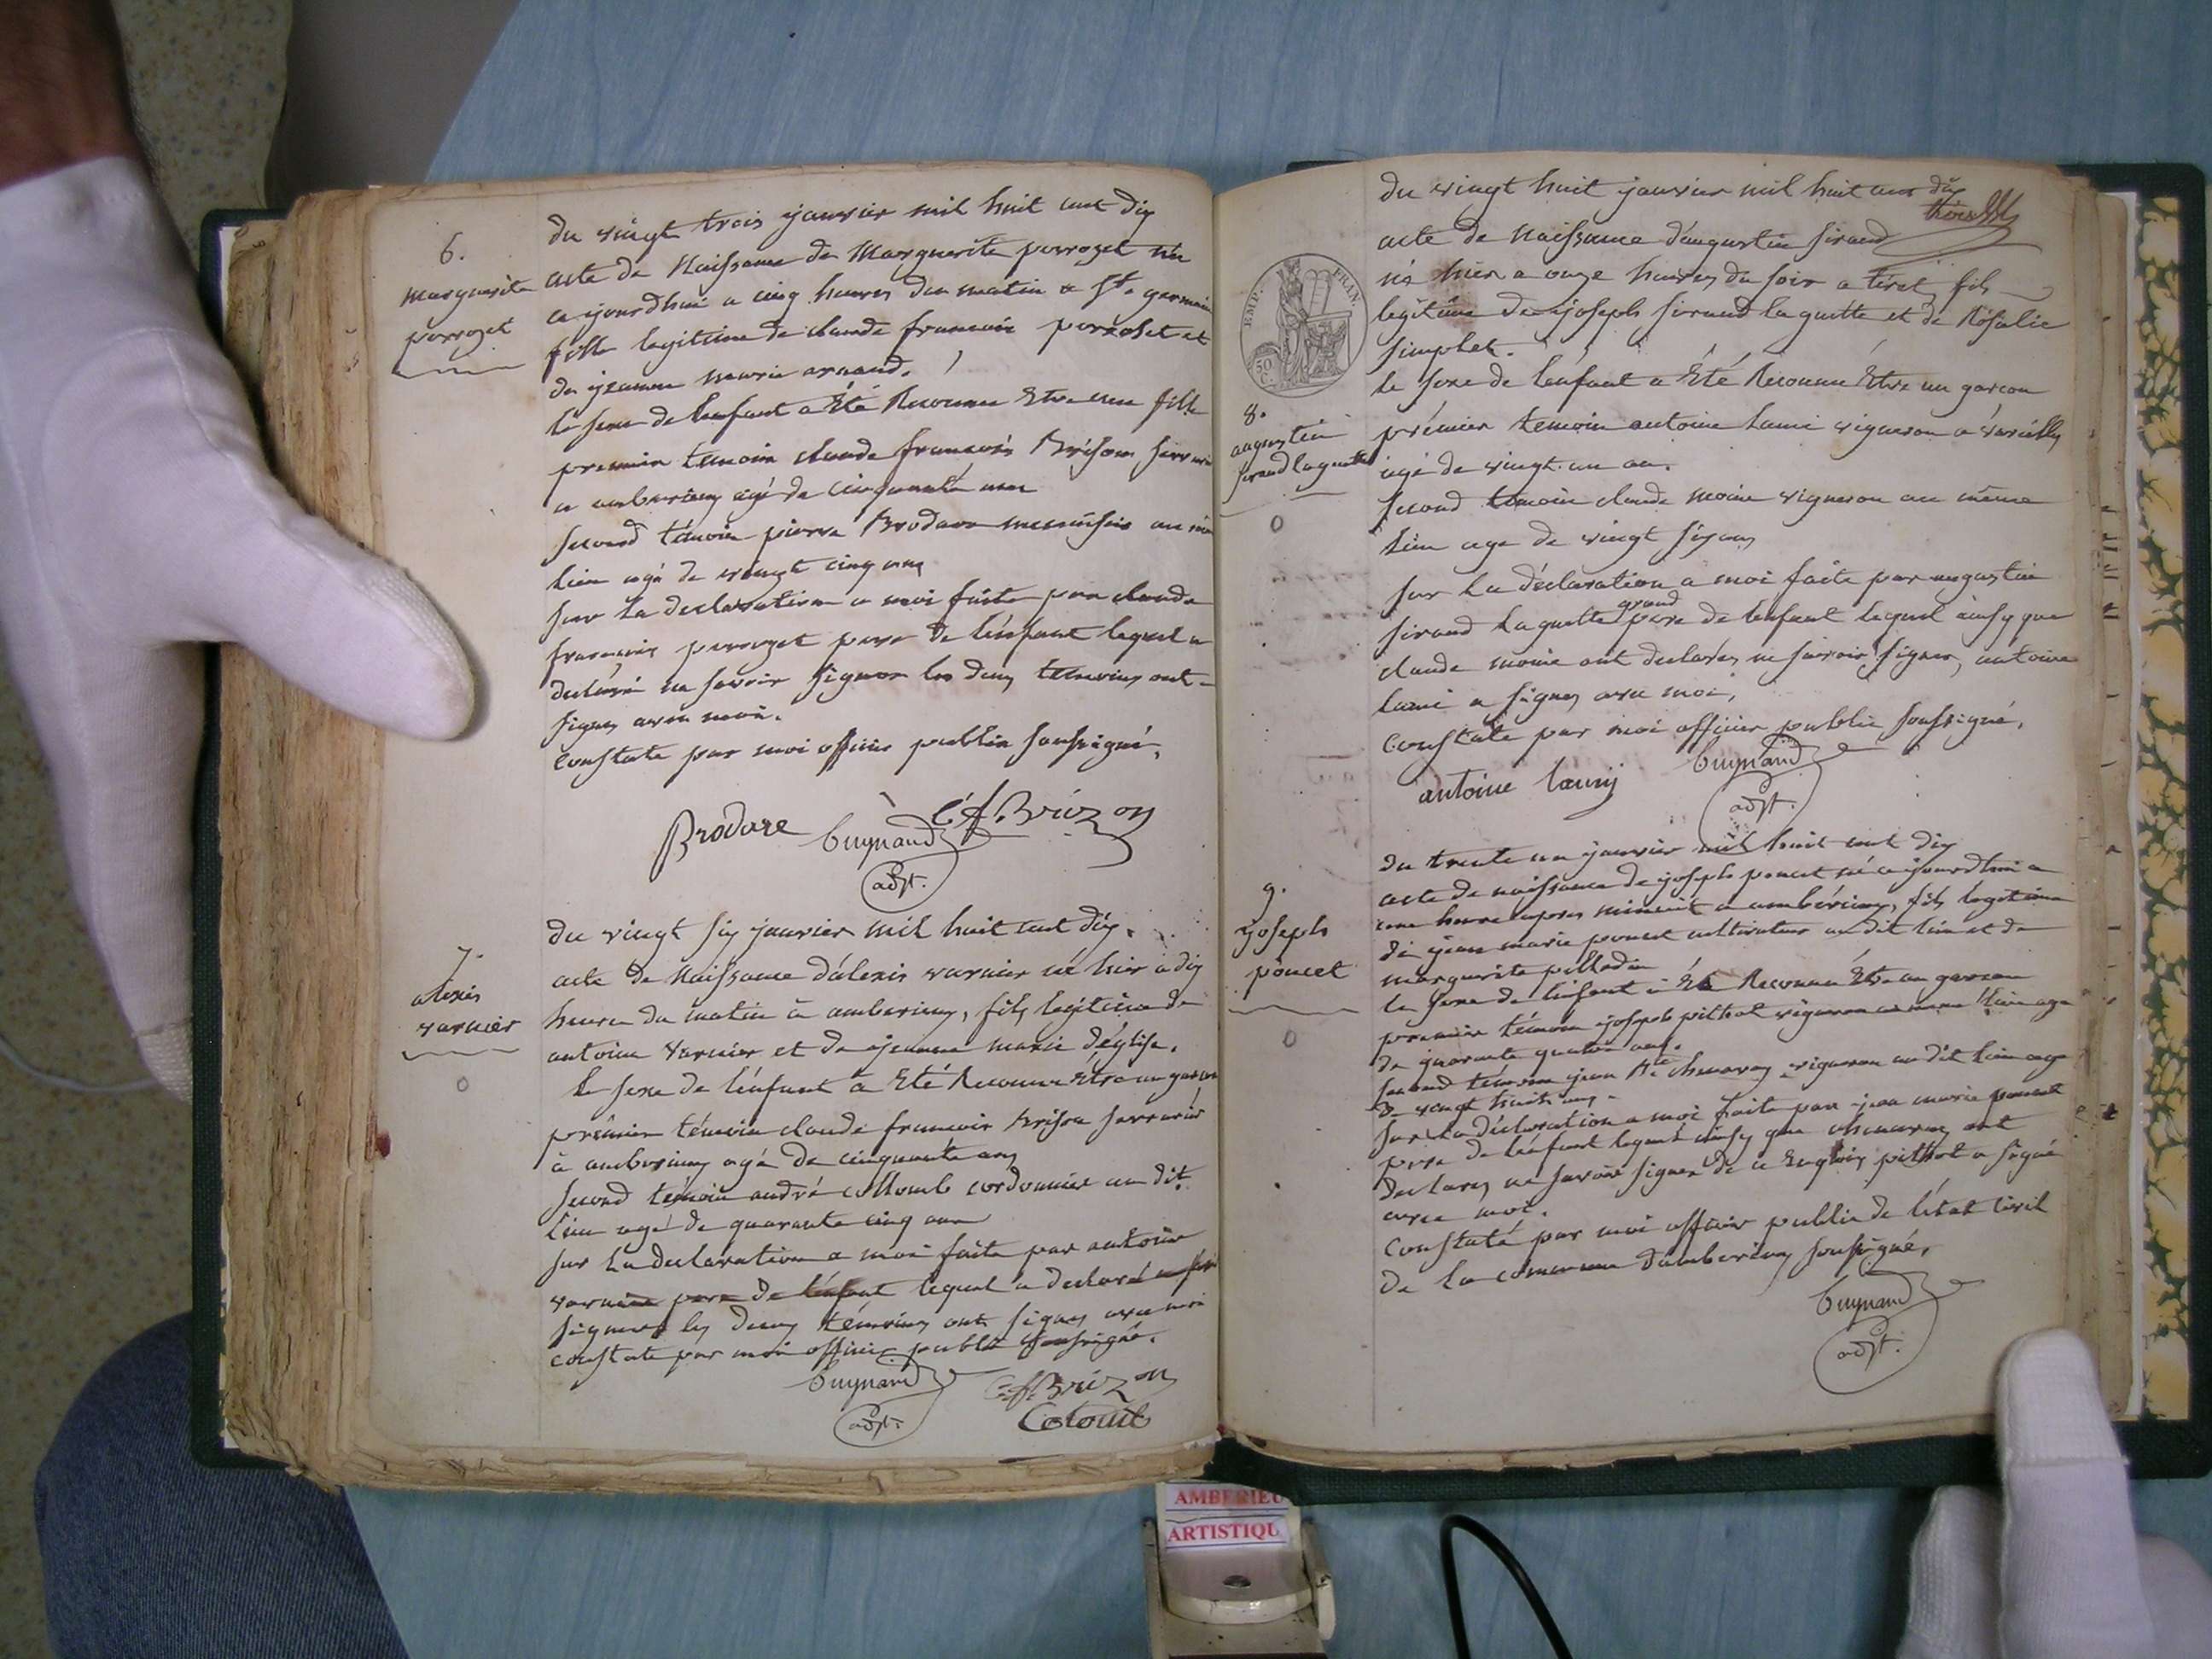 6.
Marguerite
perrozet
du vingt trois janvier mil huit cent dix
acte de Naissance de Marguerite perrozet née
ce jourdhui a cinq heures du matin a St. germain
fille legitime de claude francois perrozet et
de jeanne marie arnaud.
le sexe de lenfant a Eté Reconnu Etre une fille
premier temoin claude francois Brison serrurier
a amberieux agé de cinquante ans
second témoin pierre Brodare menuisier au même
lieu agé de vingt cinq ans
sur la declaration a moi faite par claude
francois perrozet pere de lénfant lequel a
declaré ne savoir signer les deux temoins ont
signés avec moi.
constaté par moi officier public soussigné.
Brodare
Cugnand
C. f. Brizon
adjt.
7.
alexis
varnier
0
du vingt six janvier mil huit cent dix.
acte de Naissance d'alexis varnier né hier a dix
heures du matin à amberieux, fils legitime de
antoine varnier et de jeanne marie déglise.
le sexe de lénfant a Eté Reconnu Etre un garcon
prémier témoin claude francois Brison serrurier
à amberieux agé de cinquante ans
second témoin andré collomb cordonnier au dit
lieu agé de quarante cinq ans
sur la declaration a moi faite par antoine
varnier pere de lénfant lequel a declaré
signer les deux témoins ont signés avec moi
constaté par moi officier public soussigné.
Cugnand
adjt.
C. f. Brizon
Colomb
du vingt huit janvier mil huit cent dix
acte de Naissance d'augustin sirand
né hier a onze heures du soir a tiret fils
legitime de joseph sirand laguette et de Rosalie
simphet.
EMP. FRAN.
50
C.
8.
augustin
sirand laguette
0
le sexe de lenfant a Eté Reconnu Etre un garcon
prémier temoin antoine lami vigneron a vareilles
agé de vingt un an.
second temoin claude moine vigneron au même
lieu age de vingt six ans
sur la déclaration a moi faite par augustin
sirand laguette grand pere de lenfant lequel ainsy que
claude moine ont declarés ne savoir signer, antoine
lami a signer avec moi,
constaté par moi officier public soussigné.
antoine lamy
Cugnand
adjt.
9.
joseph
poncet
0
du trente un janvier mil huit cent dix
acte de naissance de joseph poncet né ce jourdhui a
une heure apres minuit a ambérieux, fils légitime
de jean marie poncet cultivateur au dit lieu et de
marguerite pilladin
le sexe de lénfant a Eté Reconnu Etre un garcon
premier témoin joseph pithot vigneron au meme lieu age
de quarante quatre ans.
second témoin jean vigneron au dit lieu age
de vingt huit ans.
sur la déclaration a moi faite par jean marie poncet
pere de lénfant lequel ainsy que ont
declarez ne savoir signer de ce Enquis pithot a signé
avec moi.
constaté par moi officier public de létat civil
de la commune d'amberieux soussigné.
Cugnand
adjt.
AMBERIEU
ARTISTIQU